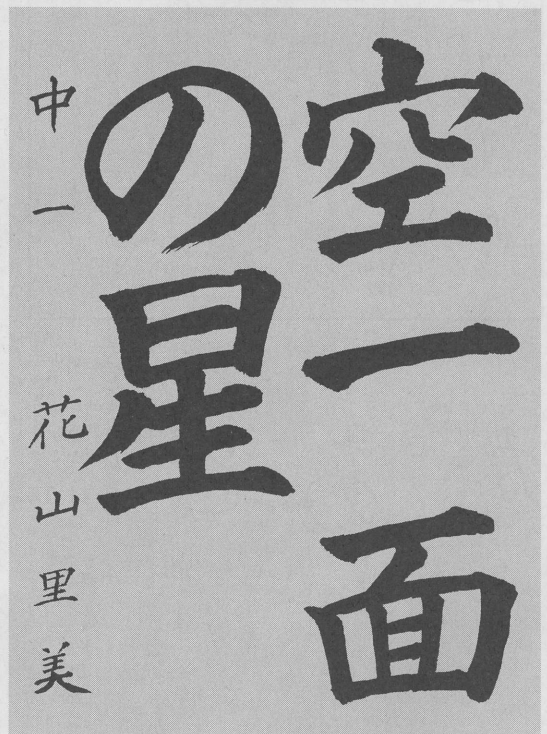 空一面
の星
中一 花山里美